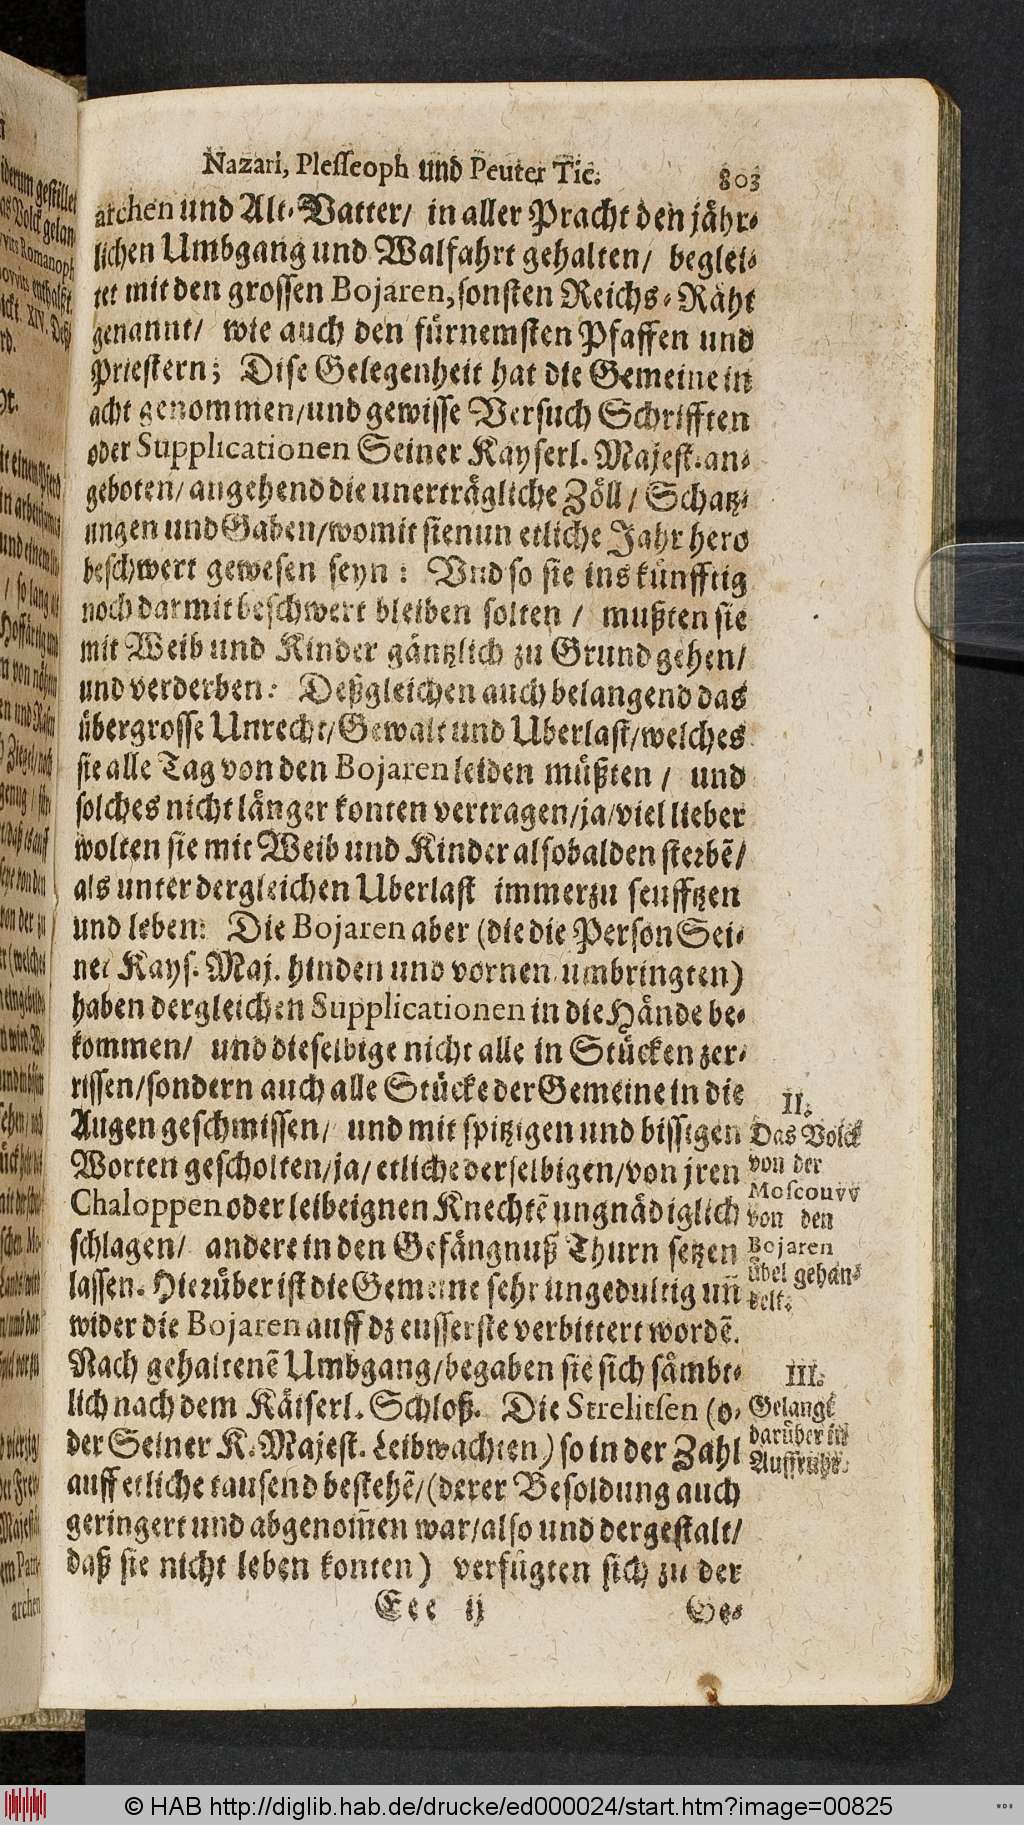 Nazari, Plesseoph und Peuter Tic. 803
archen und Alt-Vatter/ in aller Pracht den jähr-
lichen Umbgang und Walfahrt gehalten/ beglei-
tet mit den grossen Bojaren, sonsten Reichs-Räht
genannt/ wie auch den fürnemsten Pfaffen und
Priestern; Dise Gelegenheit hat die Gemeine in
acht genommen/und gewisse Versuch Schrifften
oder Supplicationen Seiner Kayserl. Majest. an-
geboten/ angehend die unerträgliche Zöll/ Schatz-
ungen und Gaben/womit sie nun etliche Jahr hero
beschwert gewesen seyn: Vnd so sie ins künfftig
noch darmit beschwert bleiben solten/ mußten sie
mit Weib und Kinder gäntzlich zu Grund gehen/
und verderben: Deßgleichen auch belangend das
übergrosse Unrecht/Gewalt und Uberlast/welches
sie alle Tag von den Bojaren leiden müßten/ und
solches nicht länger konten vertragen/ja/viel lieber
wolten sie mit Weib und Kinder alsobalden sterbẽ/
als unter dergleichen Uberlast immerzu seufftzen
und leben: Die Bojaren aber (die die Person Sei-
ner Kays. Maj. hinden und vornen umbringten)
haben dergleichen Supplicationen in die Hände be-
kommen/ und dieselbige nicht alle in Stücken zer-
rissen/sondern auch alle Stücke der Gemeine in die
Augen geschmissen/ und mit spitzigen und bissigen
Worten gescholten/ja/etliche derselbigen/von jren
Chaloppen oder leibeignen Knechtẽ ungnädiglich
schlagen/ andere in den Gefängnuß Thurn setzen
lassen. Hierüber ist die Gemeine sehr ungedultig uñ
wider die Bojaren auff dz eusserste verbittert wordẽ.
Nach gehaltenẽ Umbgang/begaben sie sich sämbt-
lich nach dem Käiserl. Schloß. Die Strelitsen (o-
der Seiner K. Majest. Leibwachten) so in der Zahl
auff etliche tausend bestehẽ/(derer Besoldung auch
geringert und abgenom̃en war/also und dergestalt/
daß sie nicht leben konten) verfügten sich zu der
Eee ij Ge-
II.
Das Volck
von der
Moscouvv
von den
Bojaren
übel gehan-
delt.
III.
Gelangt
darüber in
Auffruhr.
© HAB http://diglib.hab.de/drucke/ed000024/start.htm?image=00825